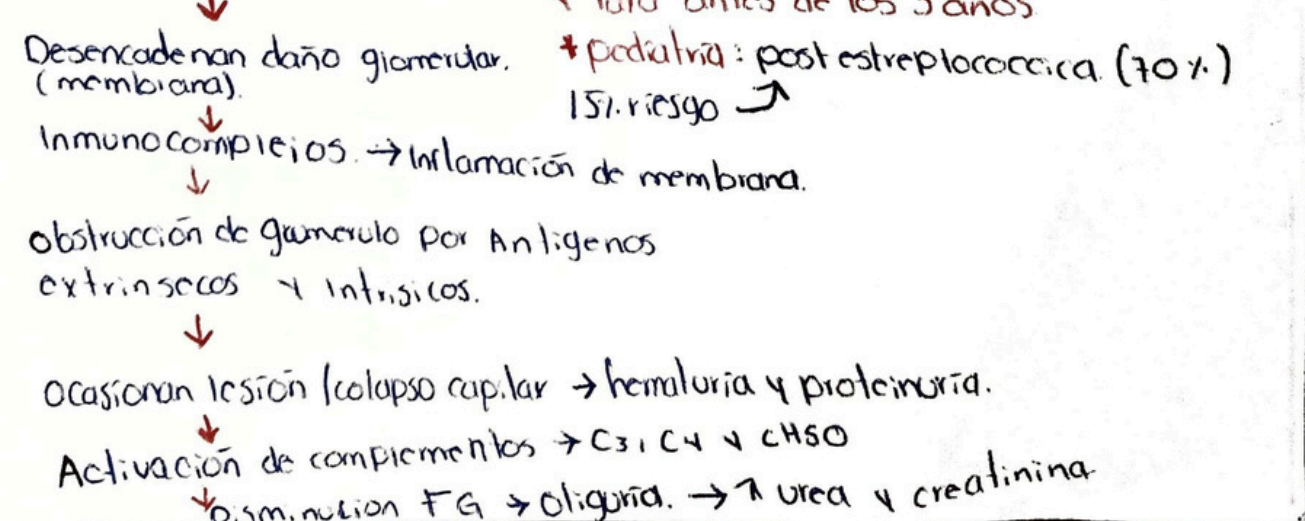 * raro antes de los 3 años
Desencadenan daño glomerular.
(membrana).
* pediatria: post estreptococcica. (70%)
15% riesgo ↗
↓
Inmunocomplejos. → Inflamación de membrana.
↓
obstrucción de glomerulo por Antigenos
extrinsecos y intrisicos.
↓
Ocasionan lesión / colapso capilar → hematuria y proteinuria.
↓
Activación de complementos → C3, C4 y CH50
↓ Disminucion FG → Oliguria. → ↑ urea y creatinina